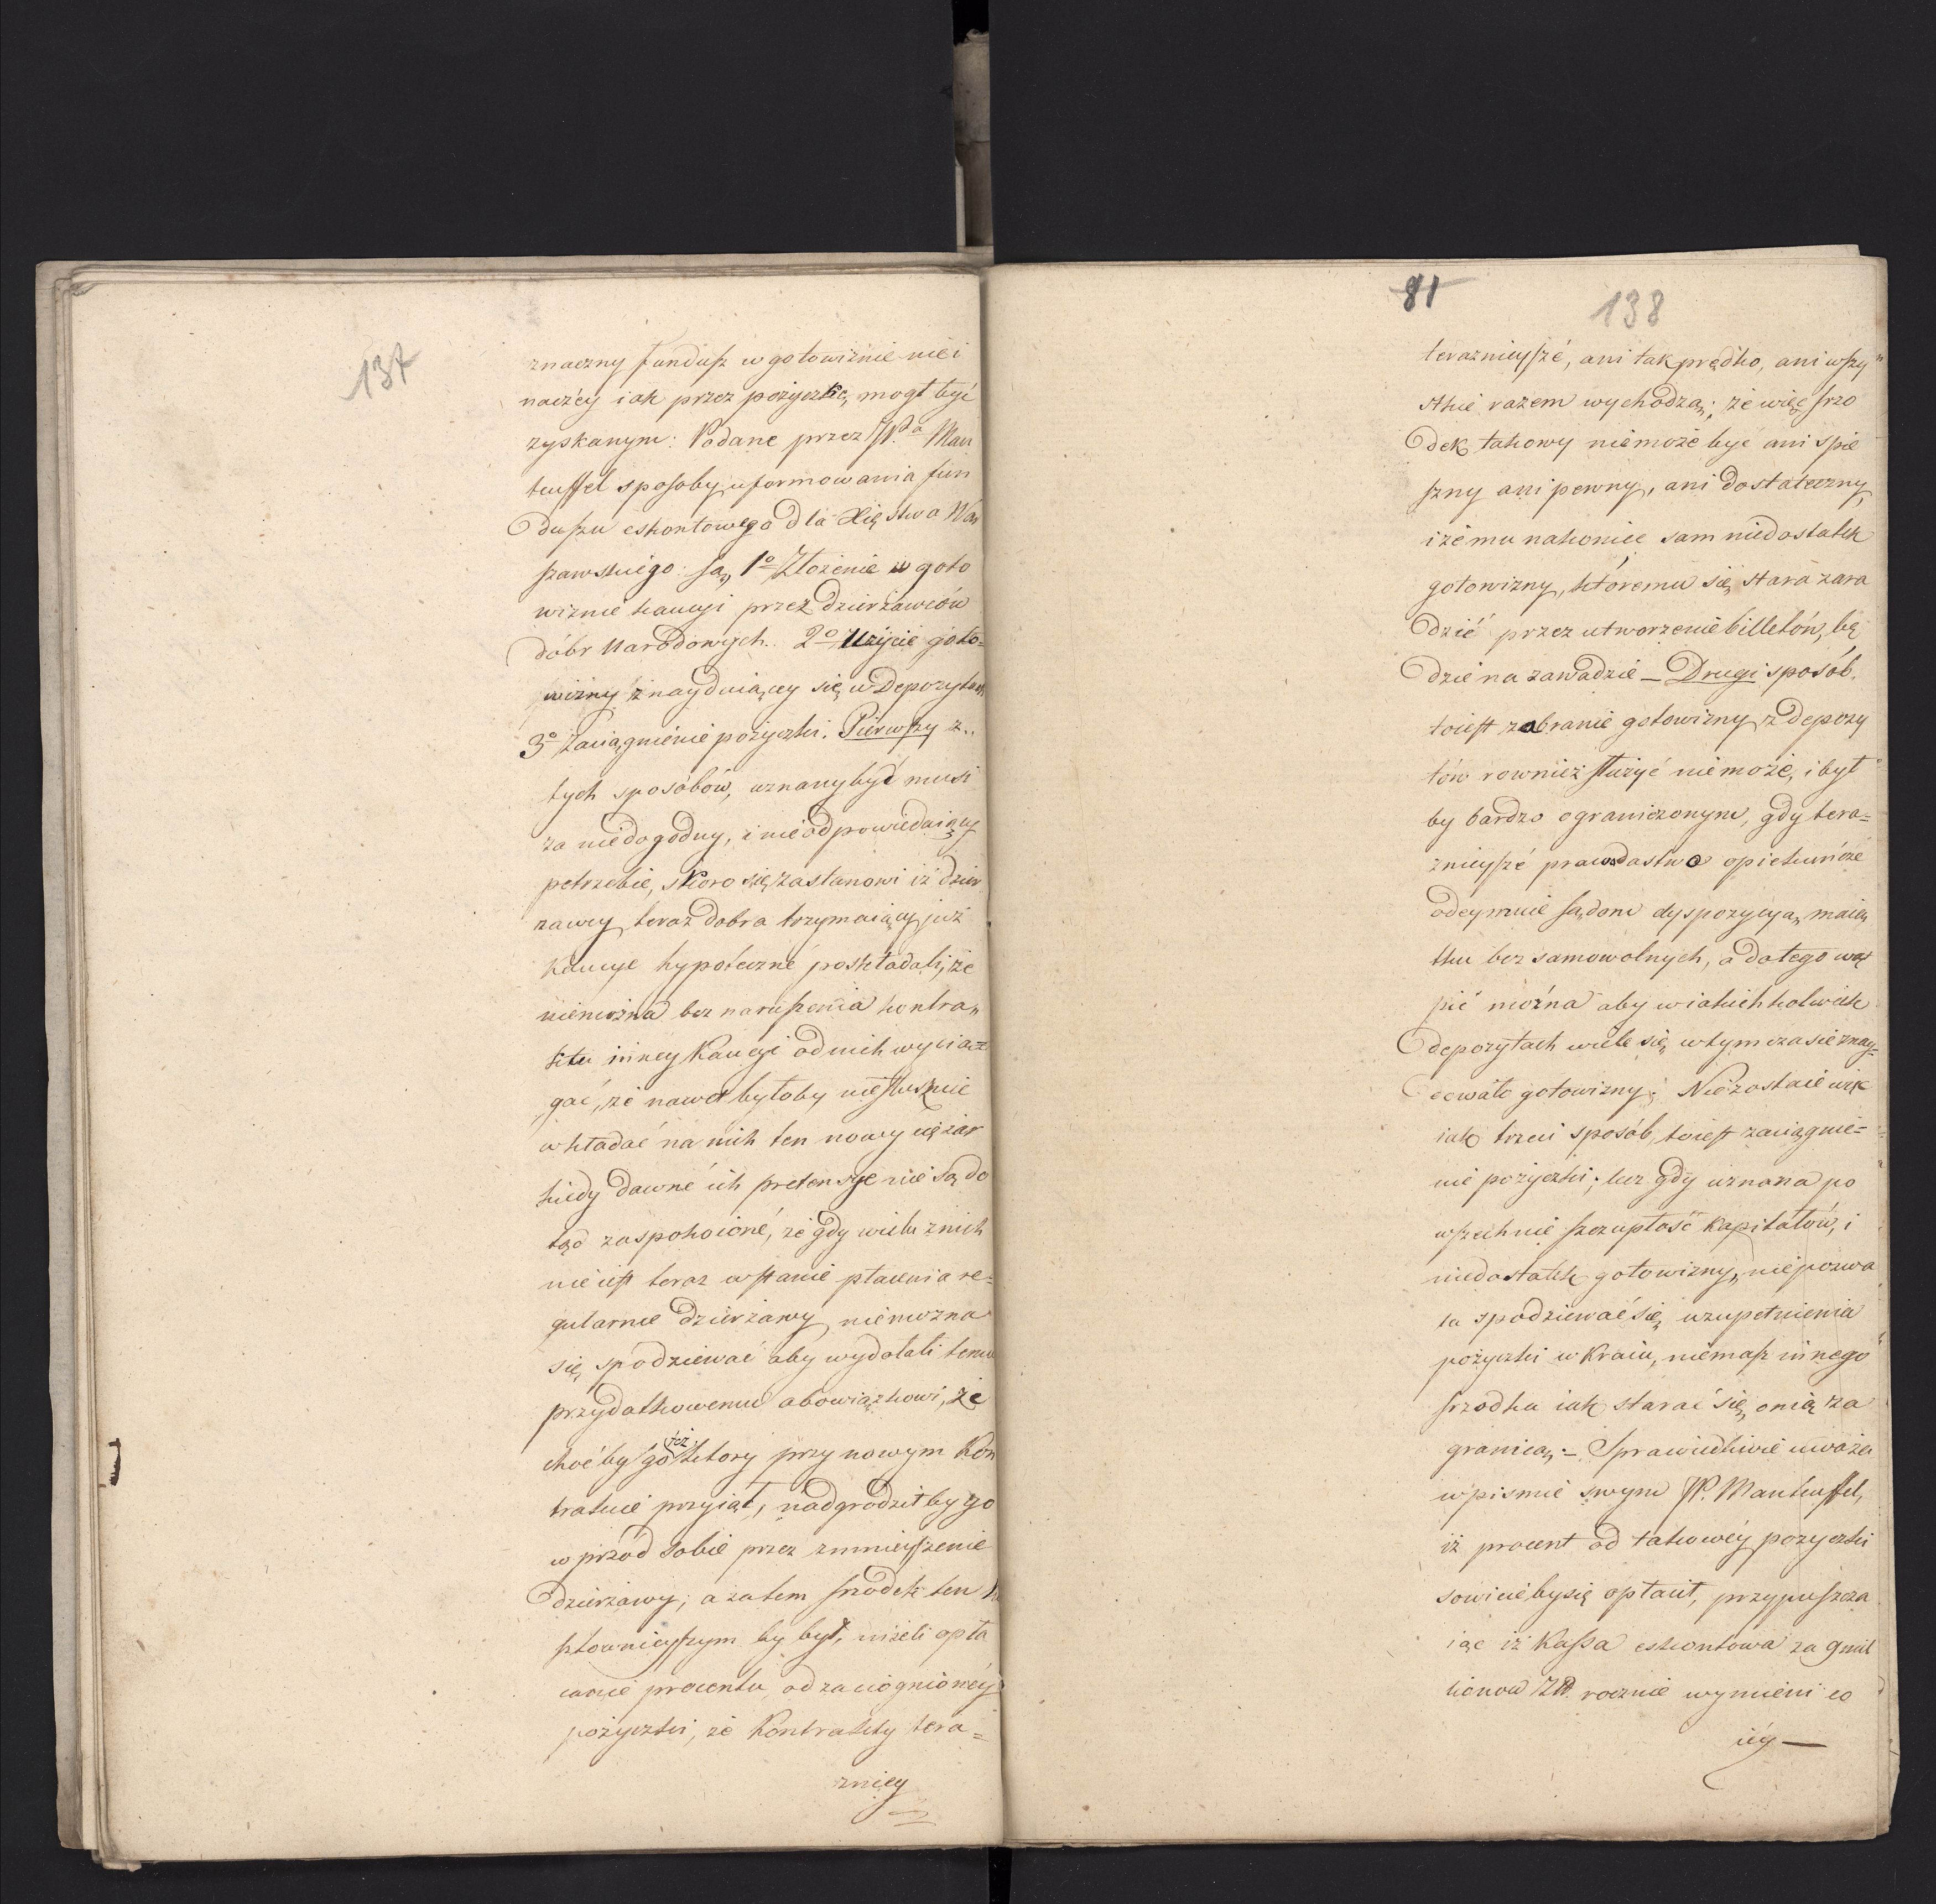 137
znaczny fundusz w gotowiźnie nie i
naczéy iak przez pożyczkę, mogł być
zyskanym: Podane przez JP.ª Man
teuffel sposoby uformowania fun
duszu eskontowego dla Xięstwa War
szawskiego: są, 1º Złożenie w goto
wiznie kaucyi przez dzierżawców
dóbr Narodowych. 2º Użycie goto=
wizny znayduiącey się w Depozytach
3º Zaciągnienie pożyczki. Pierwszy z..
tych sposóbów, uznany być musi
za niedogodny, i nieodpowiedaiący
potrzebie, skoro się zastanowi iż dzier
zawcy teraz dobra trzymaiący już
kaucye hypoteczné poskładali, że
niemożna bez naruszenia kontra„
ktu inney Kaucyi od nich wyciąz
gać, że nawet byłoby niesłusznie
wkładać na nich ten nowy ciężar
kiedy dawné ich pretensye nie są do
tąd zaspokoioné, że gdy wielu z nich
nie iest teraz w stanie płacenia re=
gularnie dzierżawy, niemożna
się, spodziewać aby wydołali temu
przydatkowemu obowiązkowi, że
choćby go też ktory przy nowym Kon
trakcie przyiął, nadgrodziłby go
w przód sobie przez zmnieyszenie
dzierżawy; a zatem srzodek ten ko
sztownieyszym by był, niżeli opła
canie procentu od zaciągnionéy
pożyczki, że Kontrakty tera=
zniey
81
138
teraznieyszé, ani tak prędko, ani wszy„
stkie razem wychodzą; że więc srzo
dek takowy niemoże być ani spie
szny ani pewny, ani dostateczny,
i że mu nakoniec sam niedostatek
gotowizny, któremu się stara zara
dzić przez utworzenie billetów, bę
dzie na zawadzie – Drugi sposób,
toiest zabranie gotowizny z depozy
tów rownież służyć niemoże, i był
by bardzo ograniczonym, gdy tera=
znieyszé prawodastwo opiekuńcze
odeymuie sądom dyspozycyą maią
tku bez samowolnych, a dotego wąt
pić można aby w iakichkolwiek
depozytach wiele się w tym czasie znay=
dowało gotowizny; Niezostaie więc
iak trzeci sposób, toiest zaciągnie=
nie pożyczki; lecz gdy uznana po
wszechnie szczupłość kapitałów, i
niedostatek gotowizny, niepozwa
la spodziewać się, uzupełnienia
pożyczki w Kraiu, niemasz innego
srzodka iak starać się o nią za
granicą; – Sprawiedliwie uważa
w pismie swym JP. Manteuffel,
iż procent od takowéy pożyczki
sowicieby się opłacił, przypuszcza
iąc iż Kassa eskontowa za 9 mil
lionow Złł. rocznie wymieni co
iéy —